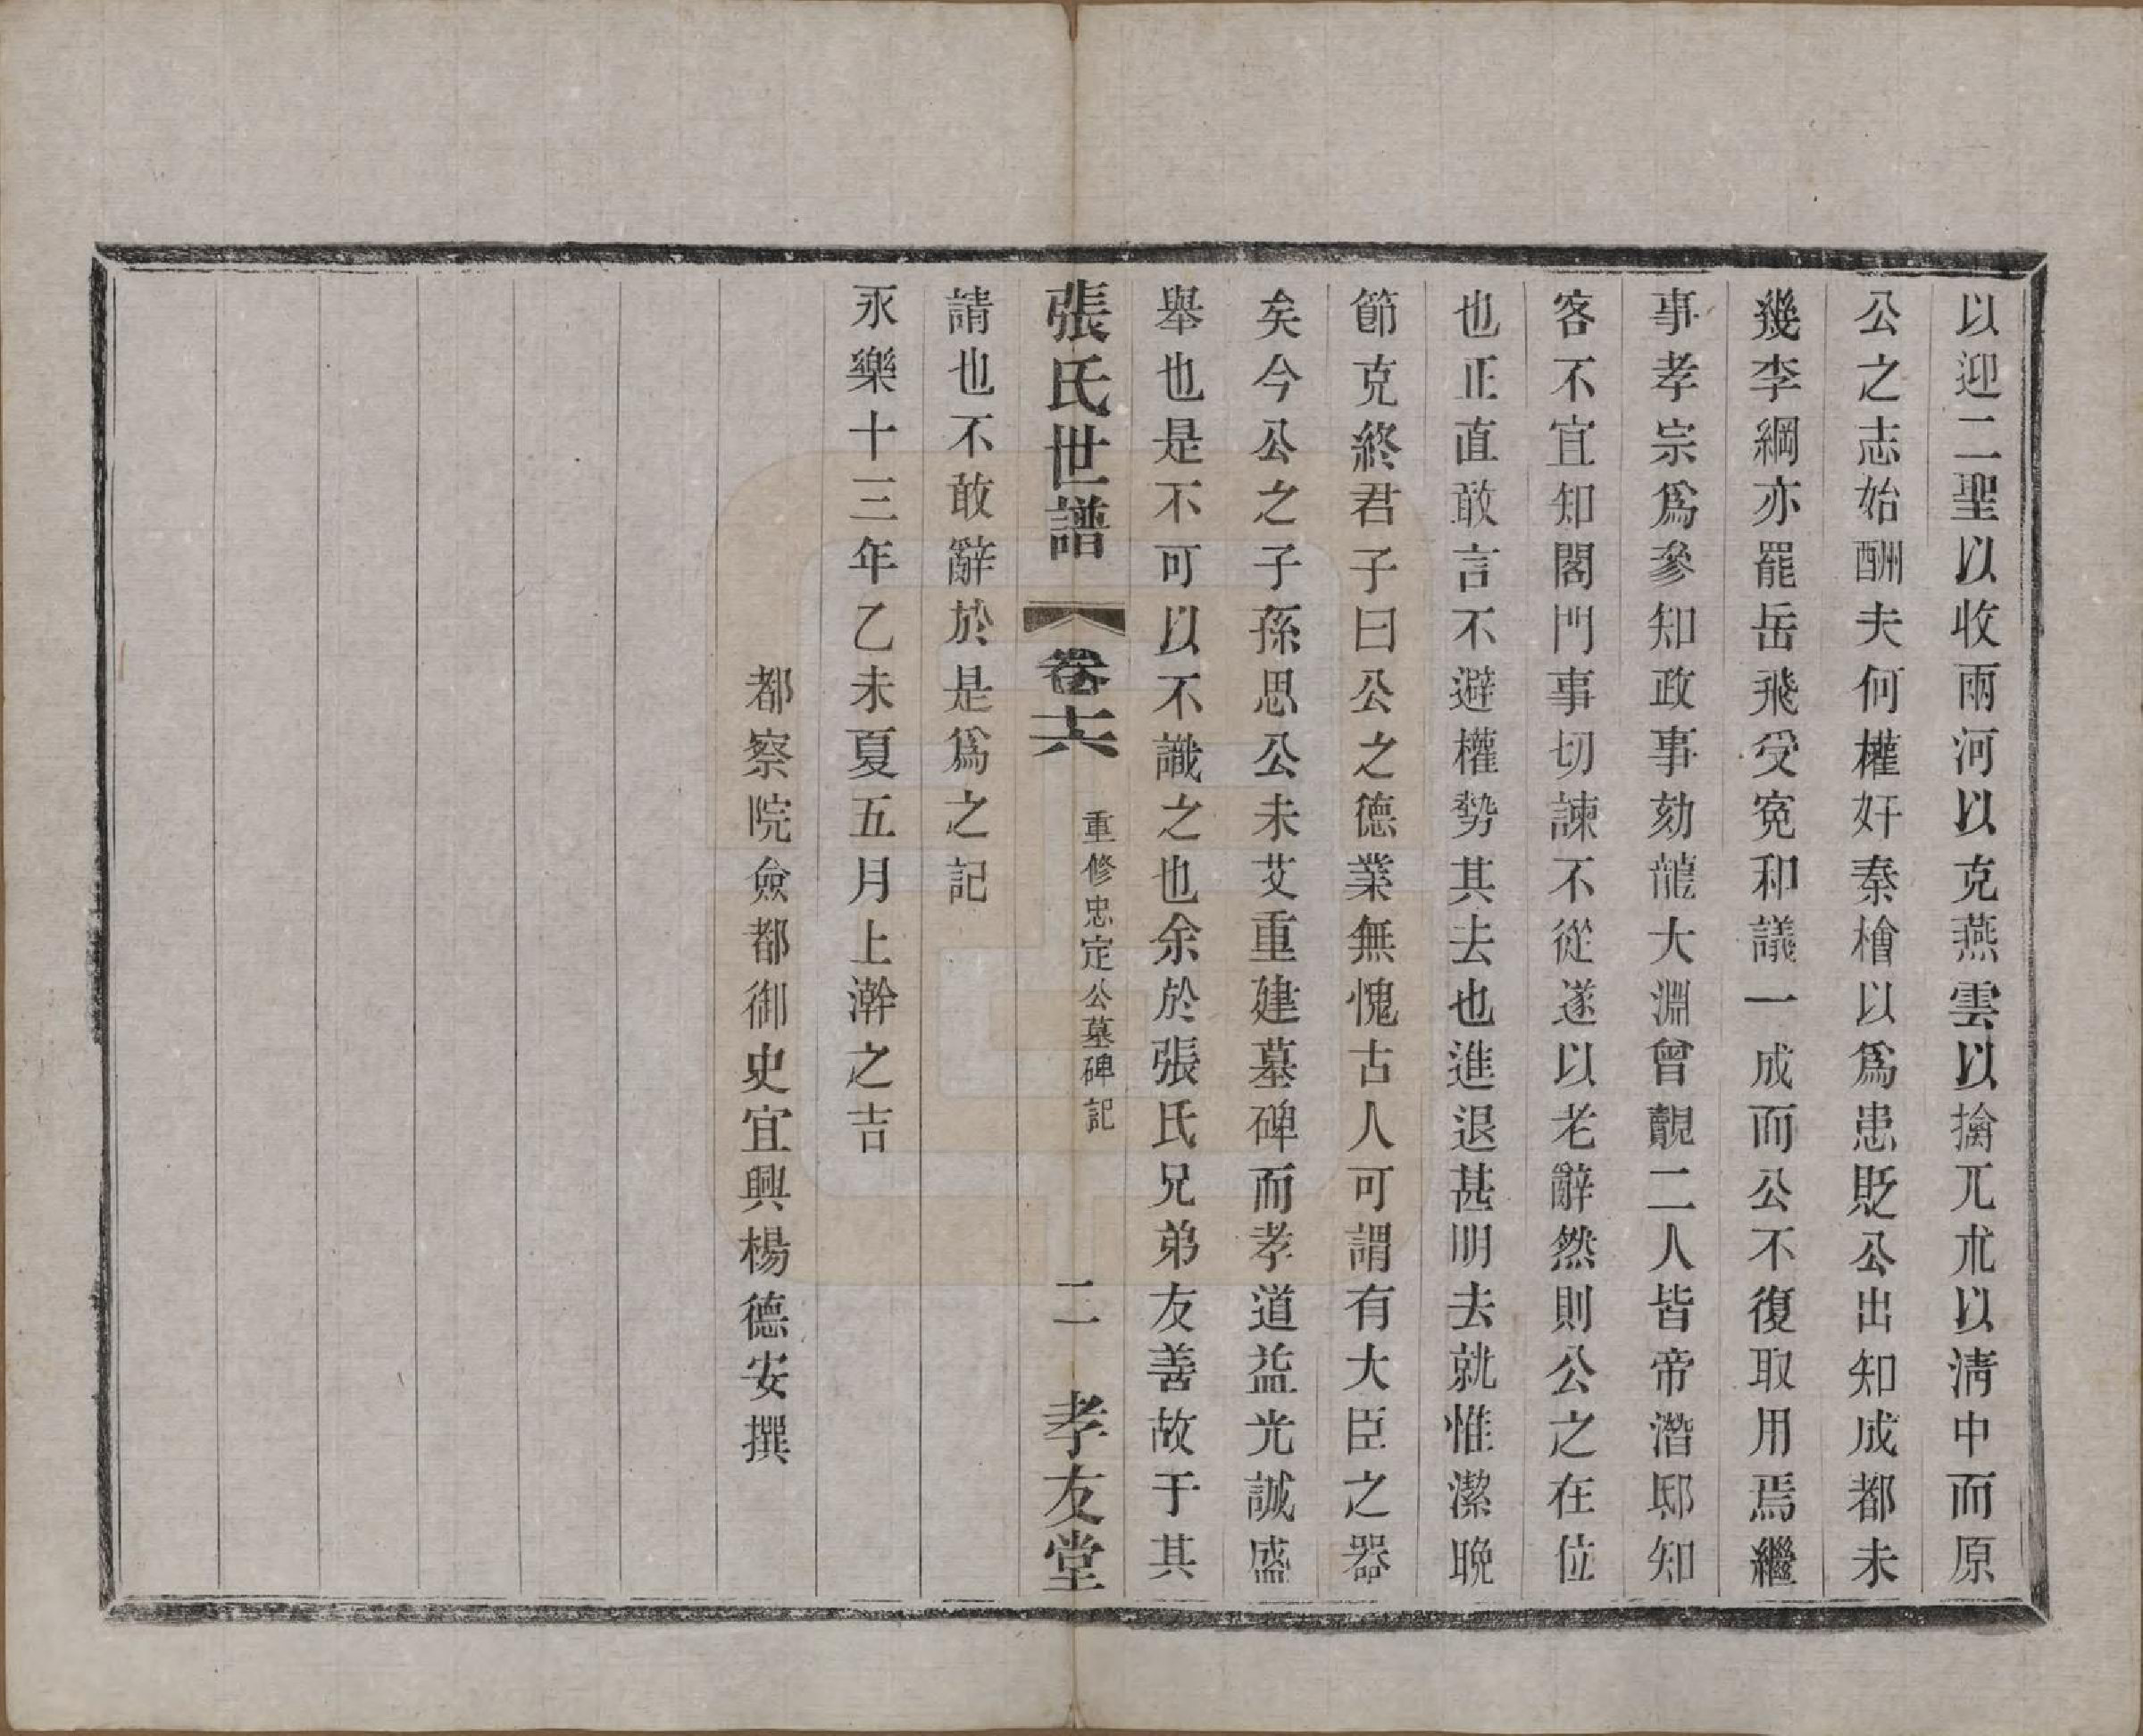 以迎二聖以收兩河以克燕雲以擒兀朮以淸中而原
公之志始酬夫何權奸秦檜以爲患貶公出知成都未
幾李綱亦罷岳飛受寃和議一成而公不復取用焉繼
事孝宗爲參知政事劾龍大淵曾覿二人皆帝潛邸知
客不宜知閤門事切諫不從遂以老辭然則公之在位
也正直敢言不避權勢其去也進退甚明去就惟潔晚
節克終君子曰公之德業無愧古人可謂有大臣之器
矣今公之子孫思公未艾重建墓碑而孝道益光誠盛
舉也是不可以不識之也余於張氏兄弟友善故于其
張氏世譜 卷十六 重修忠定公墓碑記 二 孝友堂
請也不敢辭於是爲之記
永樂十三年乙未夏五月上澣之吉
都察院僉都御史宜興楊德安撰